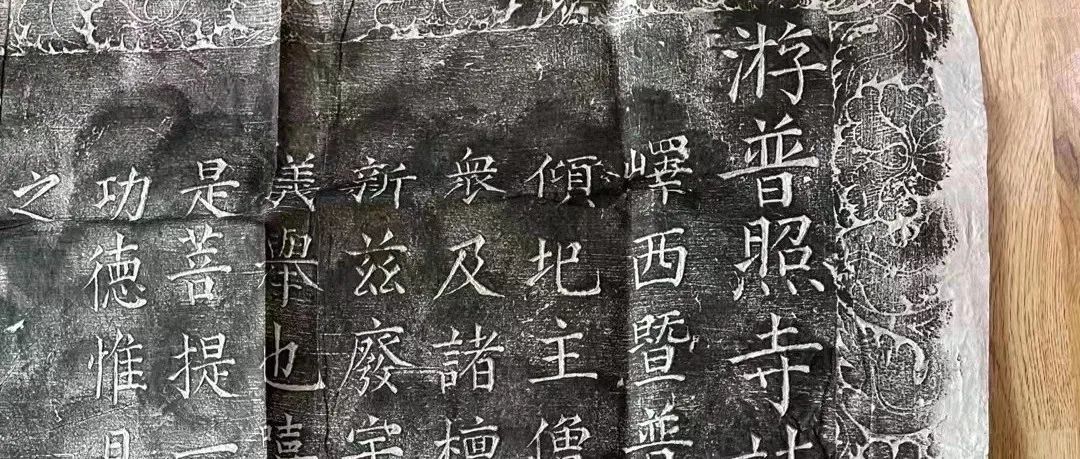 游普照寺
嶧西暨普
傾圯主僧
衆及諸檀
新兹廢
義舉也
是菩提一
功德惟
之